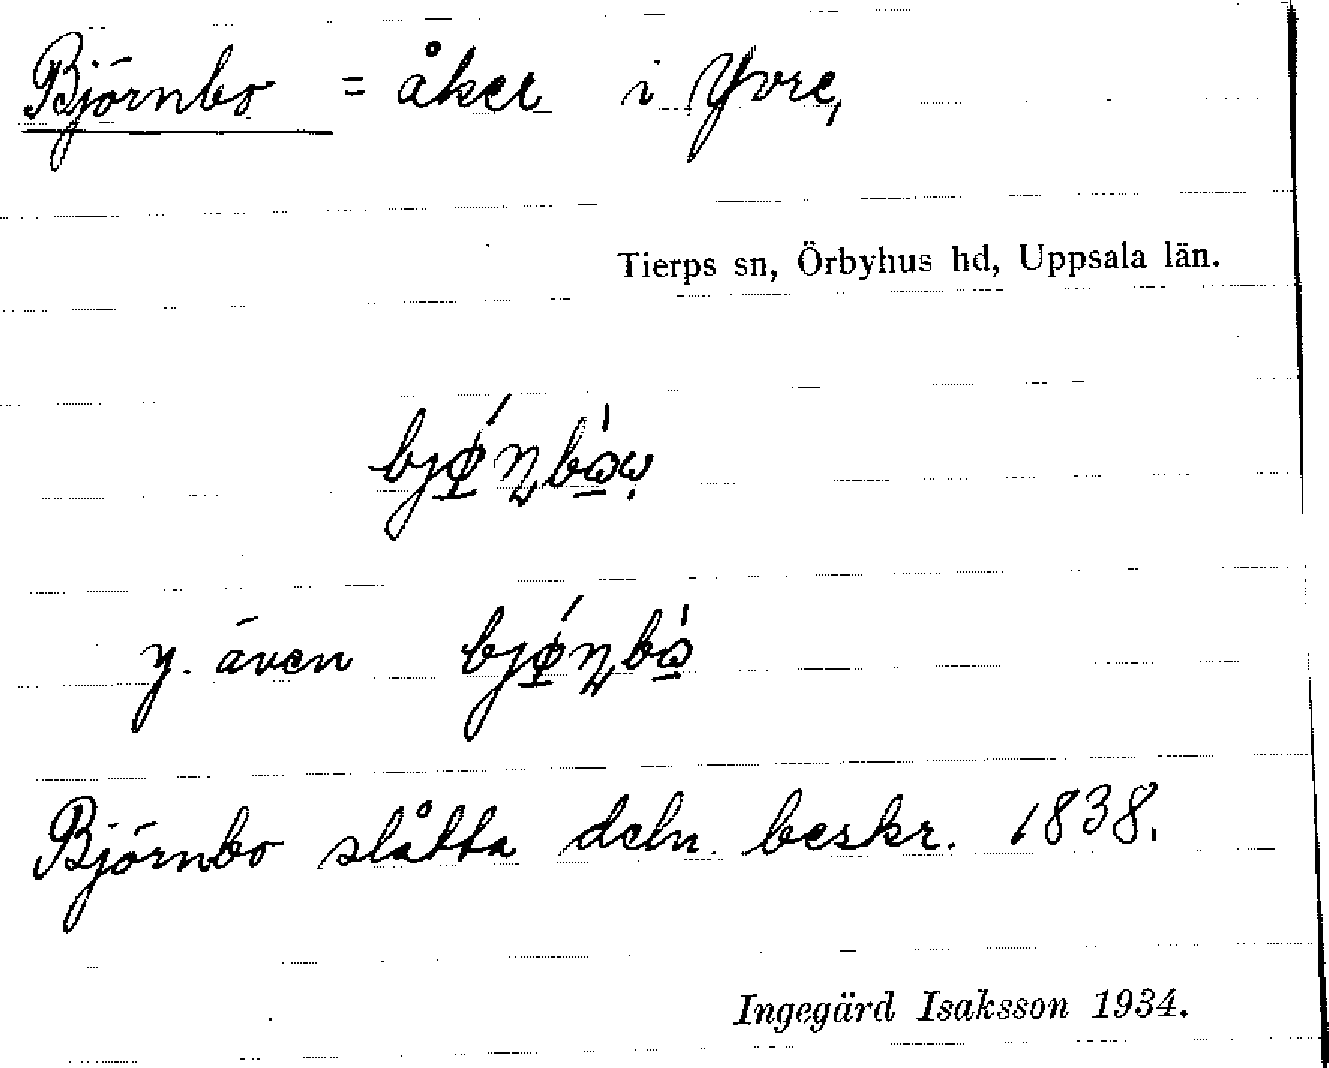 Björnbo = åker i Yvre,
Tierps sn, Örbyhus hd, Uppsala län.
y. även
Björnbo slåtta deln. beskr. 1838.
Ingegärd Isaksson 1934.